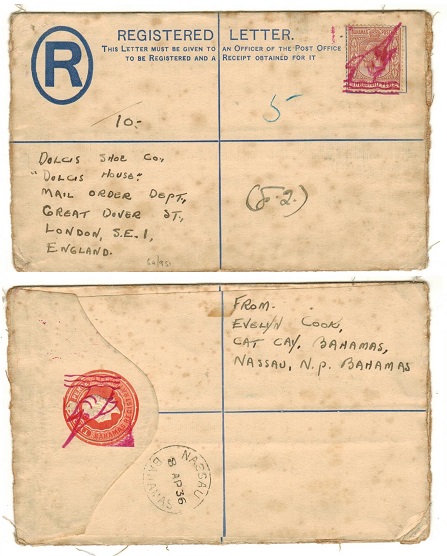 REGISTERED LETTER.
THIS LETTER MUST BE GIVEN TO AN OFFICER OF THE POST OFFICE
TO BE REGISTERED AND A RECEIPT OBTAINED FOR IT
R
5
10-
DOLCIS SHOE CO.,
"DOLCIS HOUSE"
MAIL ORDER DEPT.,
GREAT DOVER ST.,
LONDON, S.E.1,
ENGLAND.
(52)
FROM-
EVELYN COOK,
CAT CAY, BAHAMAS,
NASSAU, N.P. BAHAMAS
NASSAU
8 AP 36
BAHAMAS